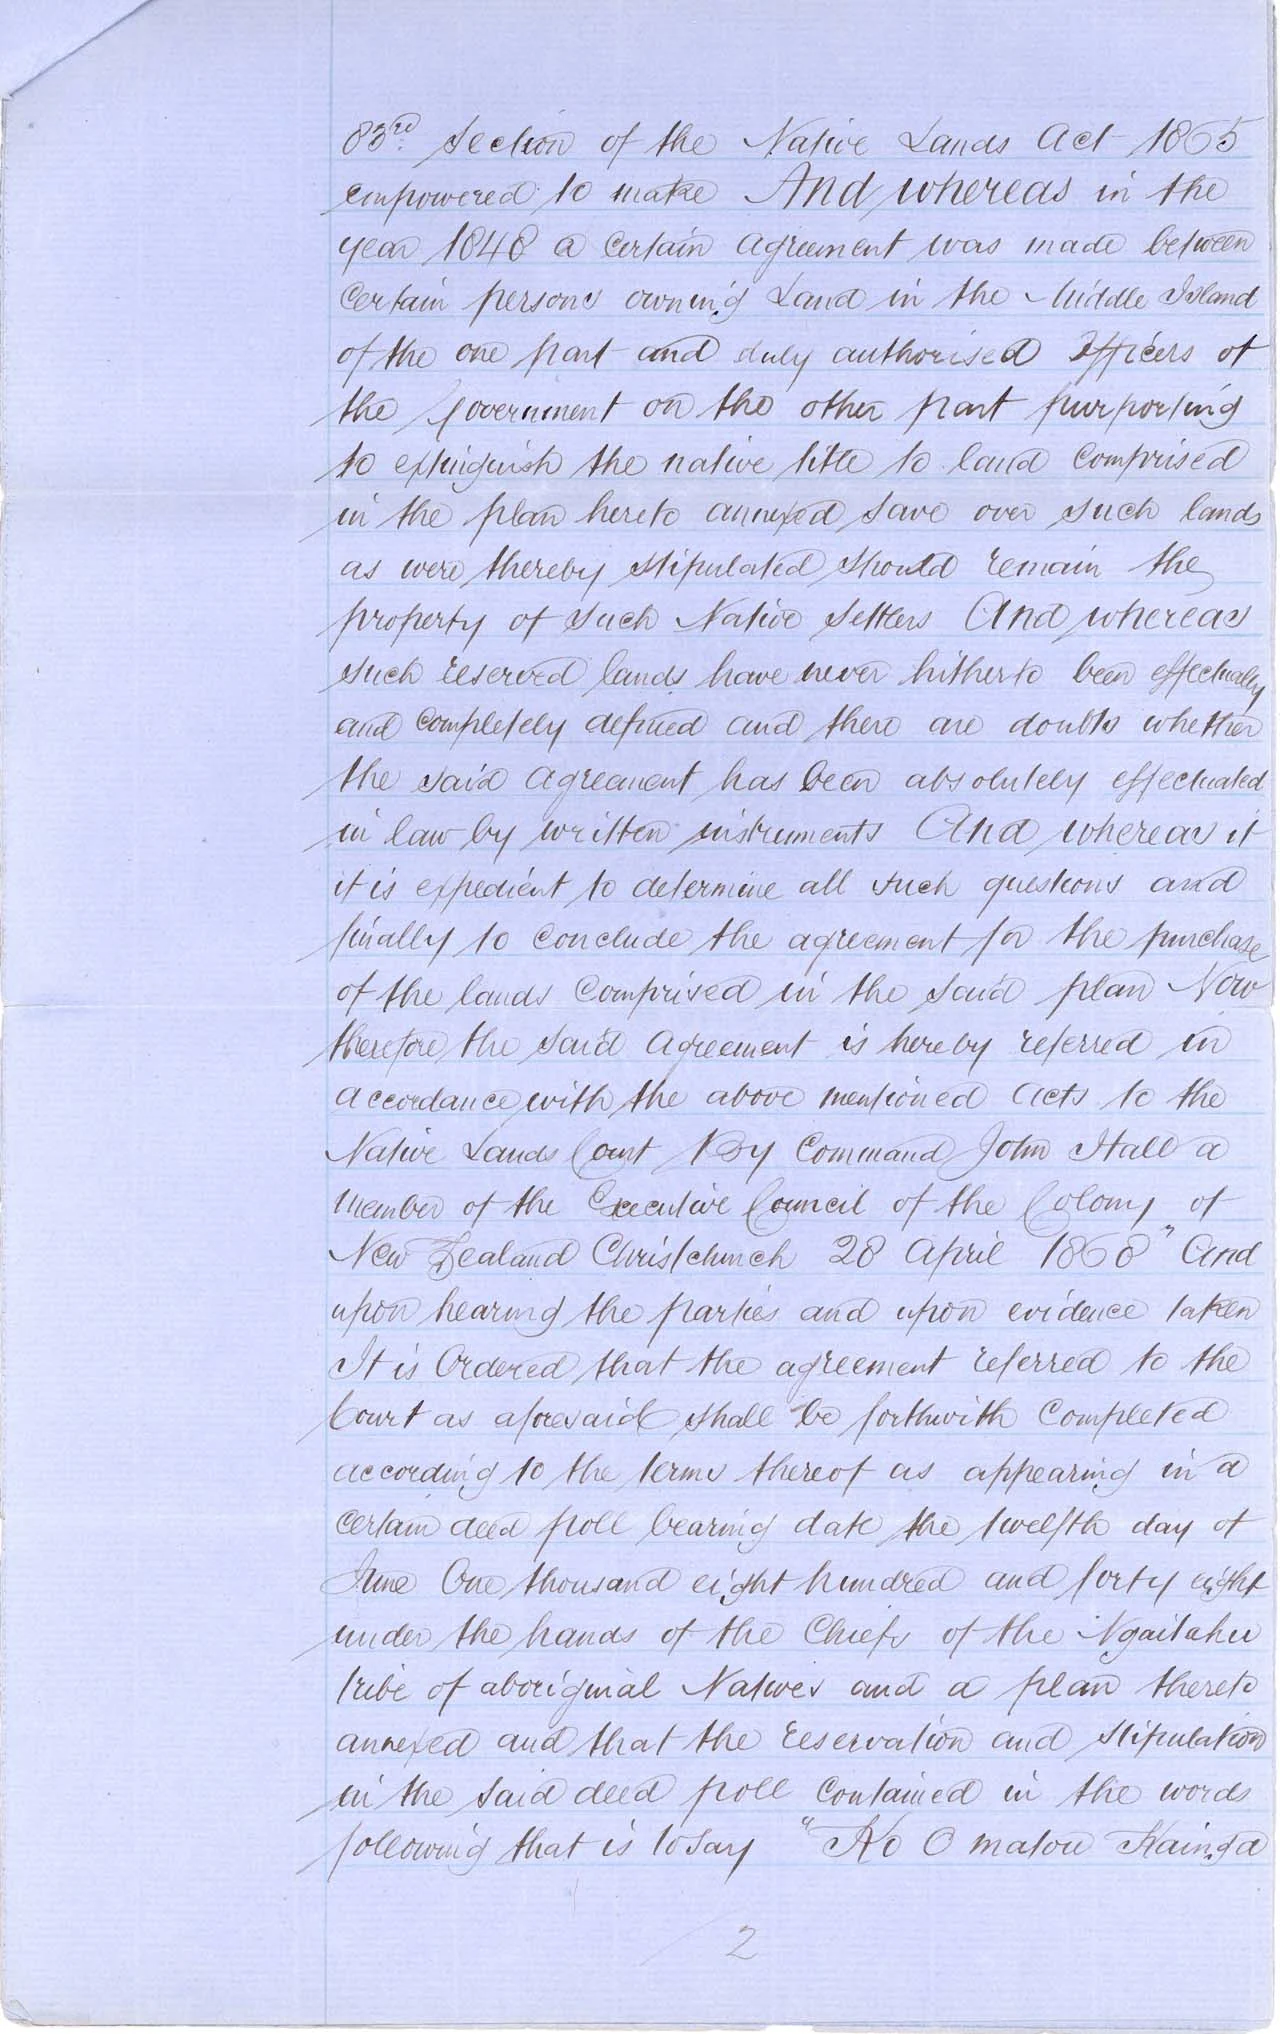 83rd. Section of the Native Lands Act 1865
empowered to make And whereas in the
year 1848 a certain agreement was made between
certain persons owning Land in the Middle Island
of the one part and duly authorised Officers of
the Government on the other part purporting
to extinguish the native title to land comprised
in the plan hereto annexed save over such lands
as were thereby stipulated should remain the
property of such Native Settlers And whereas
such reserved lands have never hitherto been effectually
and completely defined and there are doubts whether
the said agreement has been absolutely effectuated
in law by written instruments And whereas it
it is expedient to determine all such questions and
finally to conclude the agreement for the purchase
of the lands comprised in the said plan Now
therefore the said Agreement is hereby referred in
accordance with the above mentioned Acts to the
Native Lands Court By Command John Hall a
member of the Executive Council of the Colony of
New Zealand Christchurch 28 April 1868" And
upon hearing the parties and upon evidence taken
It is Ordered that the agreement referred to the
Court as aforesaid shall be forthwith completed
according to the terms thereof as appearing in a
certain deed poll bearing date the twelfth day of
June One thousand eight hundred and forty eight
under the hands of the Chiefs of the Ngaitahu
tribe of aboriginal Natives and a plan thereto
annexed and that the reservation and stipulation
in the said deed poll contained in the words
following that is to say "Ko O matou Kainga
2